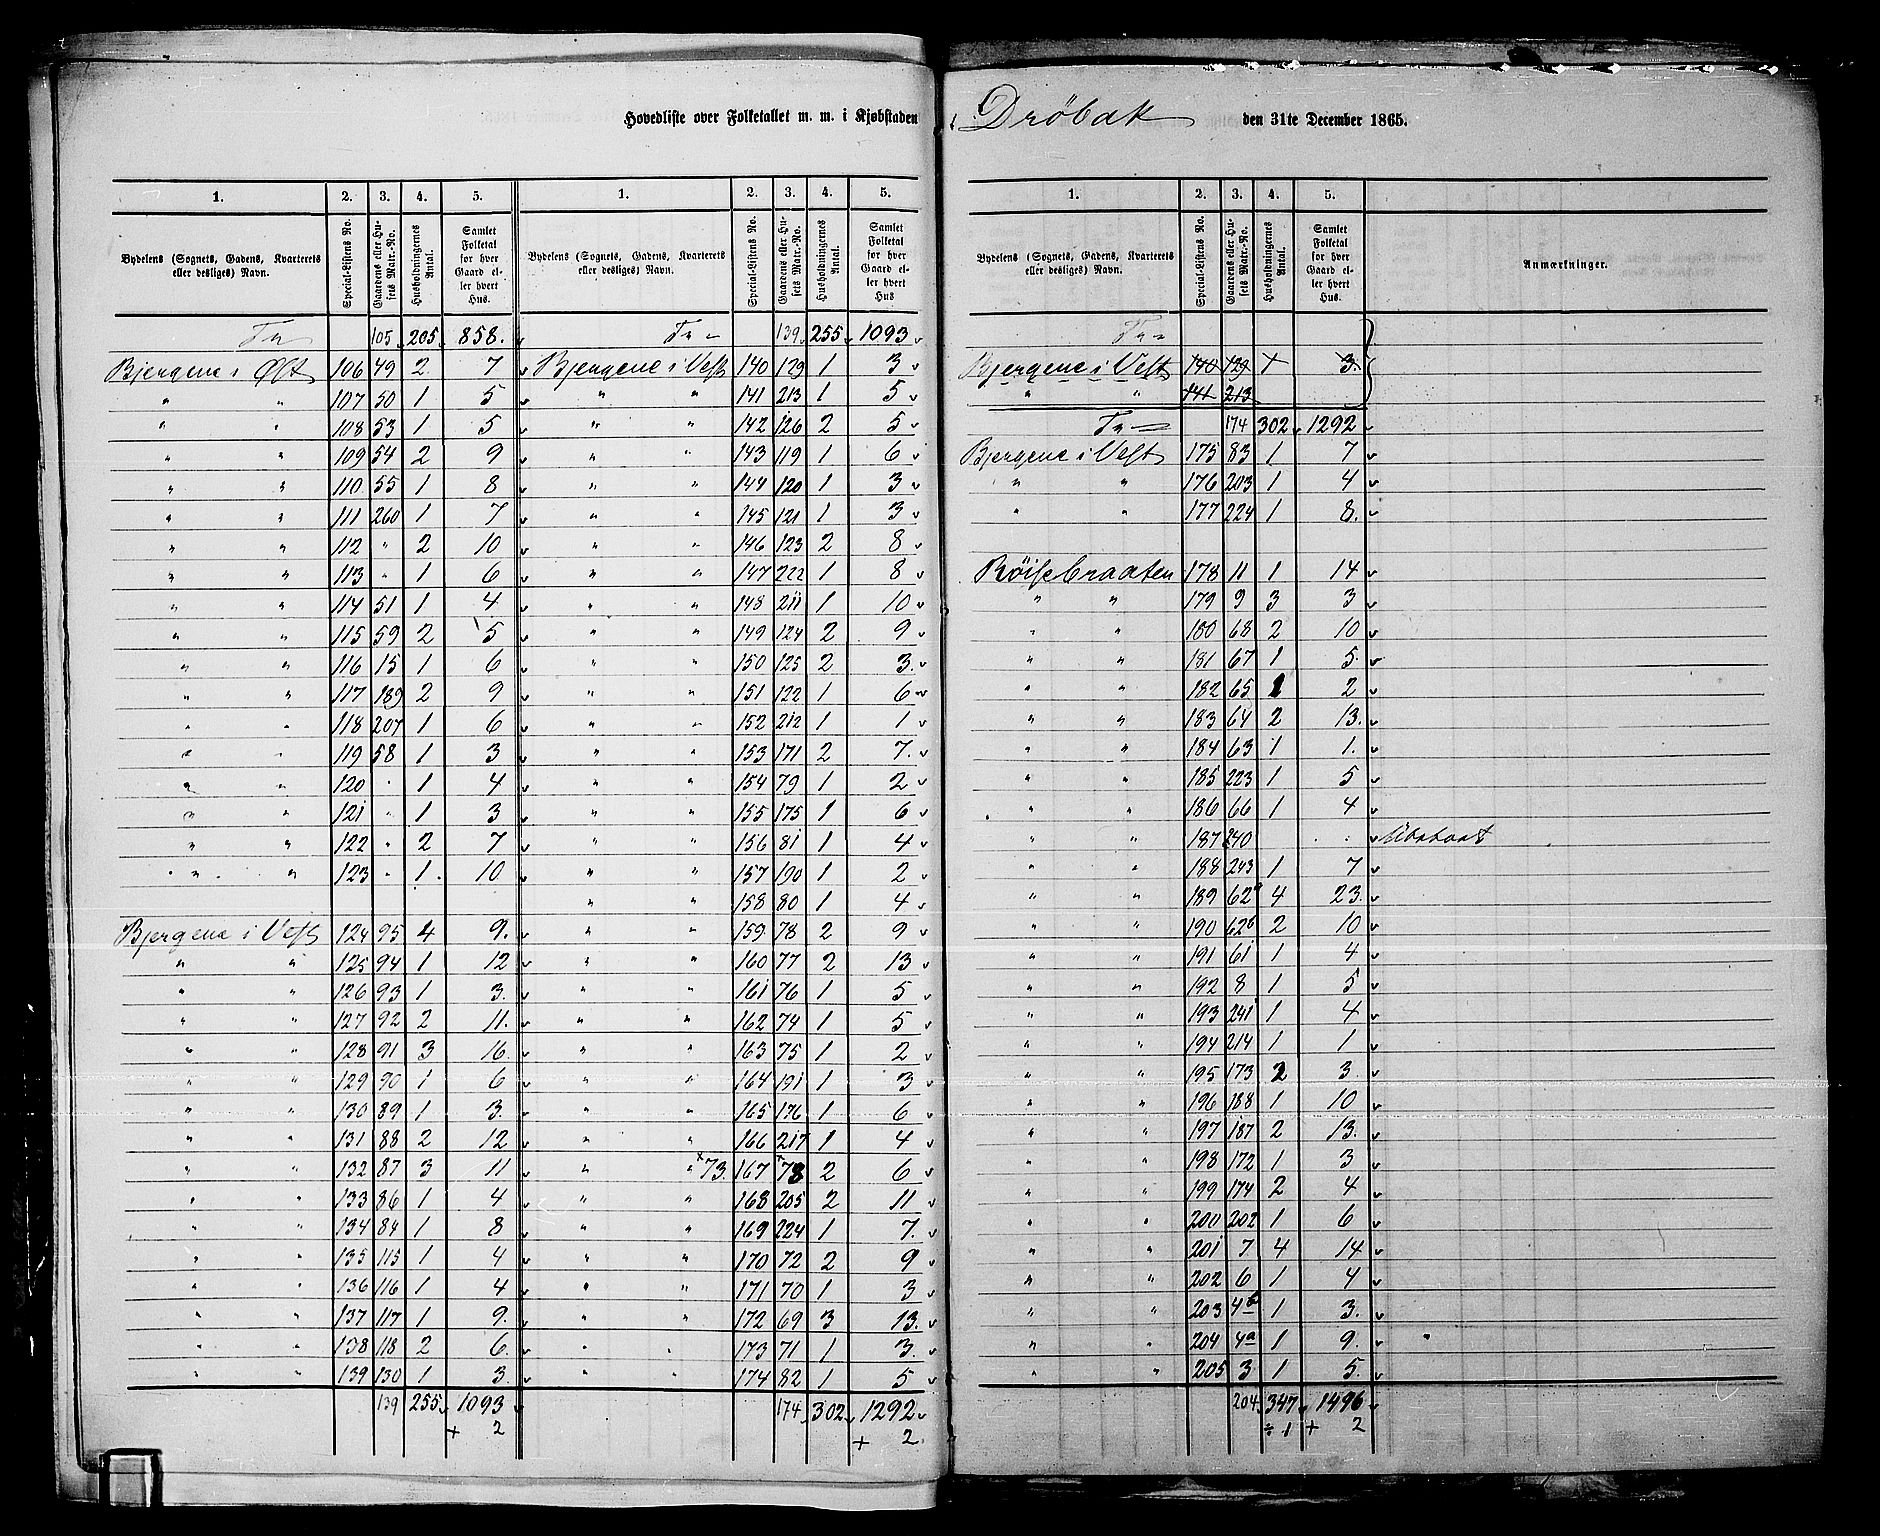 Hovedliste over Folketallet m. m. i Kjøbstaden Drøbak den 31te December 1865.
1. 2. 3. 4. 5.
Bydelens (Sognets, Gadens, Kvarterets eller desliges) Navn. Special-Listens No. Gaardens eller Husets Matr.-No. Husholdningernes Antal. Samlet Folketal for hver Gaard eller hvert Hus.
Tr 105 205 858.
Bjergene i Øst 106 49 2 7
" " 107 50 1 5
" " 108 53 1 5
" " 109 54 2 9
" " 110 55 1 8
" " 111 260 1 7
" " 112 " 2 10
" " 113 " 1 6
" " 114 51 1 4
" " 115 59 2 5
" " 116 15 1 6
" " 117 189 2 9
" " 118 207 1 6
" " 119 58 1 3
" " 120 " 1 4
" " 121 " 1 3
" " 122 " 2 7
" " 123 " 1 10
Bjergene i Vest 124 95 4 9.
" " 125 94 1 12
" " 126 93 1 3.
" " 127 92 2 11.
" " 128 91 3 16.
" " 129 90 1 6
" " 130 89 1 3.
" " 131 88 2 12
" " 132 87 3 11
" " 133 86 1 4
" " 134 84 1 8
" " 135 115 1 4
" " 136 116 1 4
" " 137 117 1 9.
" " 138 118 2 6.
" " 139 130 1 3.
139 255 1093
+ 2
1. 2. 3. 4. 5.
Bydelens (Sognets, Gadens, Kvarterets eller desliges) Navn. Special-Listens No. Gaardens eller Husets Matr.-No. Husholdningernes Antal. Samlet Folketal for hver Gaard eller hvert Hus
Tr 139 255 1093
Bjergene i Vest 140 129 1 3
" " 141 213 1 5
" " 142 126 2 5
" " 143 119 1 6
" " 144 120 1 3
" " 145 121 1 3
" " 146 123 2 8
" " 147 222 1 8
" " 148 211 1 10
" " 149 124 2 9
" " 150 125 2 3.
" " 151 122 1 6
" " 152 212 1 1
" " 153 171 2 7.
" " 154 79 1 2
" " 155 175 1 6
" " 156 81 1 4
" " 157 190 1 2
" " 158 80 1 4
" " 159 78 2 9
" " 160 77 2 13
" " 161 76 1 5
" " 162 74 1 5
" " 163 75 1 2
" " 164 191 1 3
" " 165 176 1 6
" " 166 217 1 4
" " ×73. 167 ×78 2 6
" " 168 205 2 11
" " 169 224 1 7.
" " 170 72 2 9
" " 171 70 1 3
" " 172 69 3 13.
" " 173 71 1 3.
" " 174 82 1 5
174 302 1292
+ 2.
1. 2. 3. 4. 5.
Bydelens (Sognets, Gadens, Kvarterets eller desliges) Navn. Special-Listens No. Gaardens eller Husets Matr.-No. Husholdningernes Antal. Samlet Folketal for hver Gaard eller hvert Hus. Anmærkninger.
Tr
Bjergene i Vest 140 129 1 3.
" " 141 213
Tr 174 302 1292
Bjergene i Vest 175 83 1 7
" " 176 203 1 4
" " 177 224 1 8.
Röisebraaten 178 11 1 14
" " 179 9 3 3
" " 180 68 2 10
" " 181 67 1 5.
" " 182 65 1 2
" " 183 64 2 13.
" " 184 63 1 1.
" " 185 223 1 5
" " 186 66 1 4
" " 187 240
" " 188 243 1 7
" " 189 62a 4 23.
" " 190 62b 2 10
" " 191 61 1 4
" " 192 8 1 5
" " 193 241 1 4
" " 194 214 1 1
" " 195 173 2 3.
" " 196 188 1 10
" " 197 187 2 13.
" " 198 172 1 3
" " 199 174 2 4
" " 200 202 1 6
" " 201 7 4 14
" " 202 6 1 4
" " 203 4b 1 3.
" " 204 4a 1 9.
" " 205 3 1 5.
204 347 1496
÷ 1 + 2